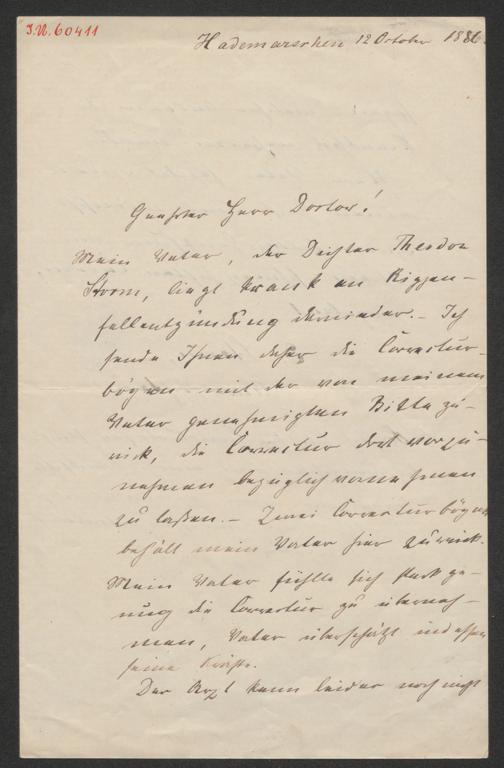 I.N. 60411
Hademarschen 12 October 1886.
Geehrter Herr Doctor!
Mein Vater, der Dichter Theodor
Storm, liegt krank an Rippen-
fellentzündung darnieder. – Ich
sende Ihnen daher die Correctur-
bögen mit der von meinem
Vater genehmigten Bitte zu-
rück, die Correctur dort vorzu-
nehmen bezüglich vornehmen
zu laßen. – Zwei Correcturbögen
behält mein Vater hier zurück.
Mein Vater fühlte sich stark ge-
nug die Correctur zu überneh-
men, Vater überschätzt indessen
seine Kräfte.
Der Arzt kann leider noch nicht